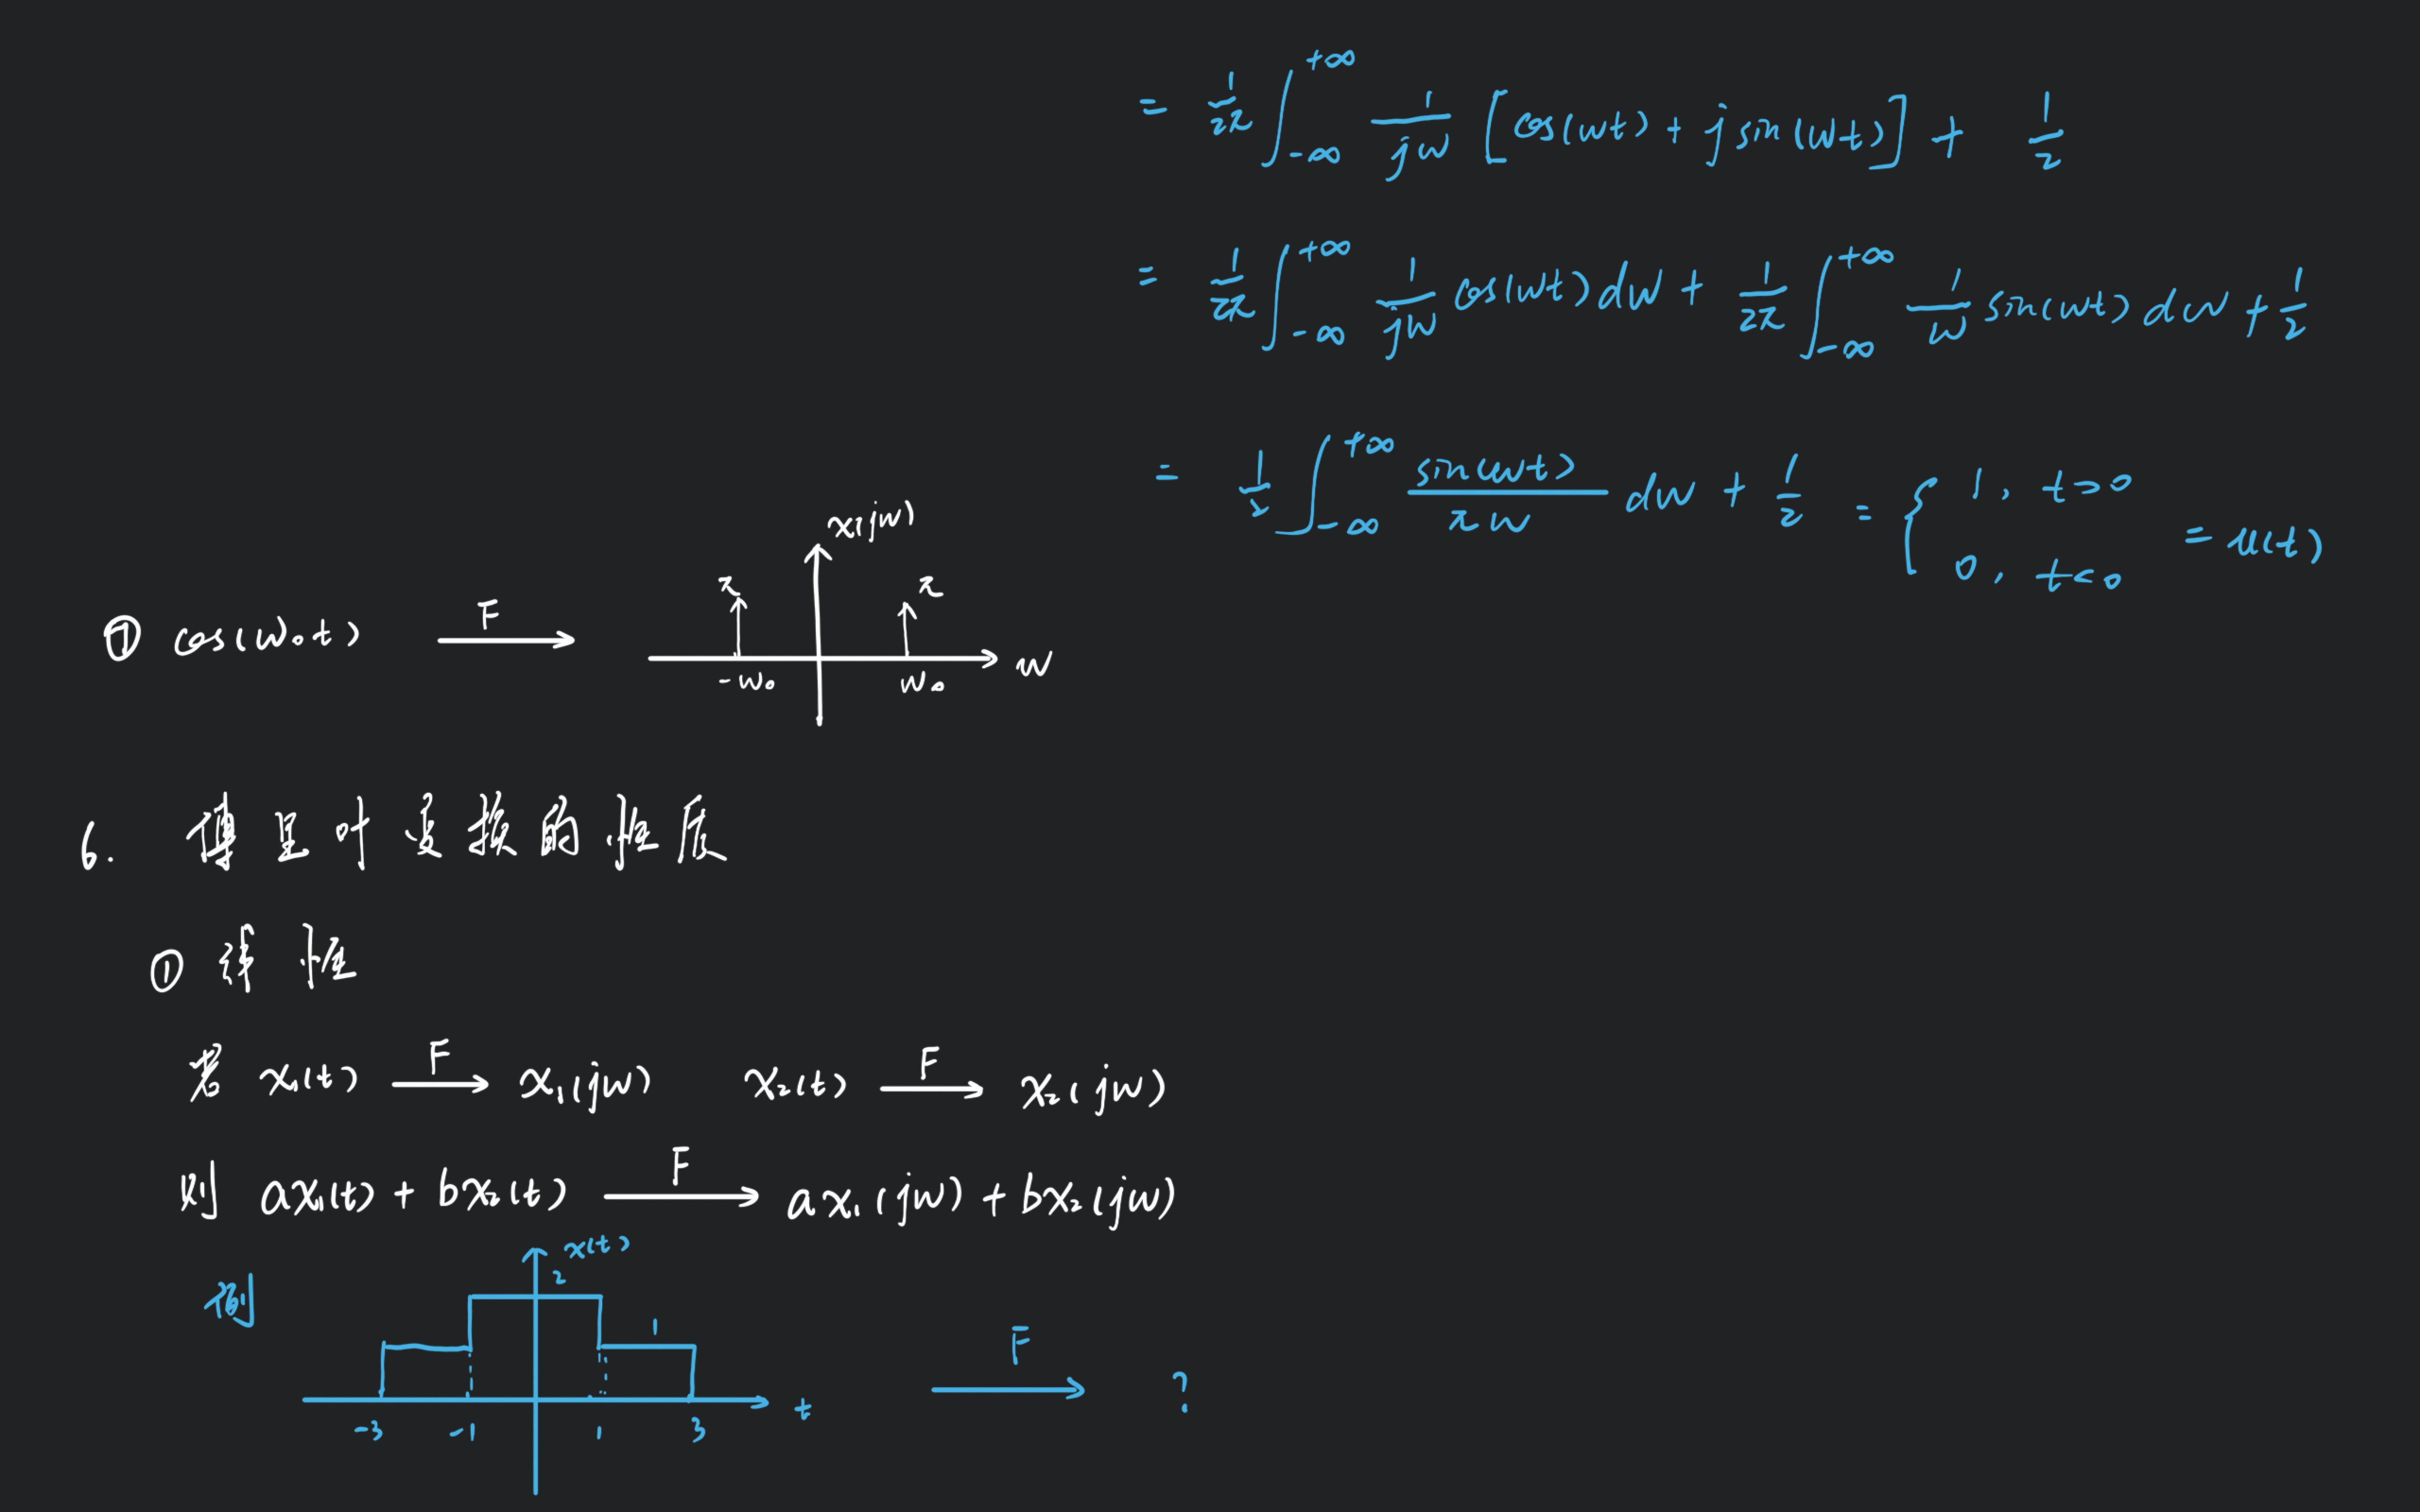 = 1/2π ∫_{-∞}^{+∞} 1/jw [cos(wt) + j sin(wt)] + 1/2
= 1/2π ∫_{-∞}^{+∞} 1/jw cos(wt) dw + 1/2π ∫_{-∞}^{+∞} 1/w sin(wt) dw + 1/2
= 1/2 ∫_{-∞}^{+∞} sin(wt)/πw dw + 1/2 = { 1, t>0
0, t<0
= u(t)
⑦ cos(w₀t) F→
x(jw)
π π
-w₀ w₀ w
6. 傅里叶变换的性质
① 线性
若 x₁(t) F→ x₁(jw) x₂(t) F→ x₂(jw)
则 ax₁(t) + bx₂(t) F→ ax₁(jw) + bx₂(jw)
例 x(t)
2
1
-3 -1 1 3 t
F→ ?